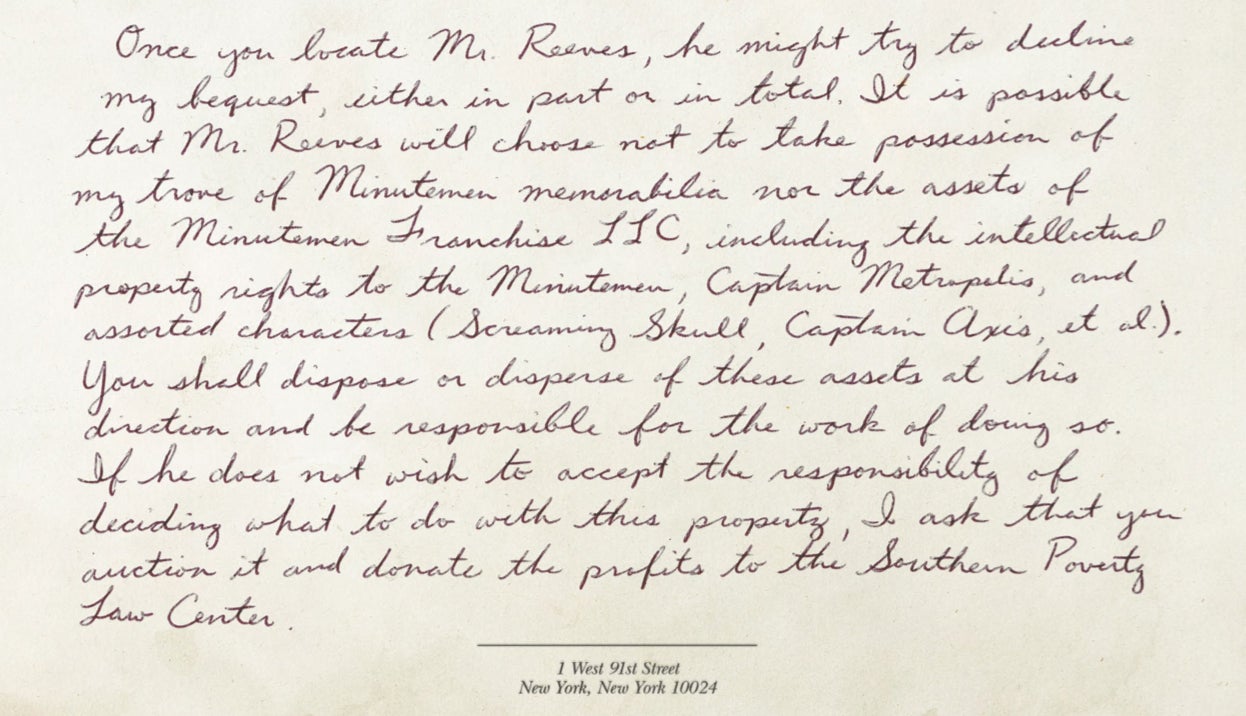 Once you locate Mr. Reeves, he might try to decline
my bequest, either in part or in total. It is possible
that Mr. Reeves will choose not to take possession of
my trove of Minutemen memorabilia nor the assets of
the Minutemen Franchise LLC, including the intellectual
property rights to the Minutemen, Captain Metropolis, and
assorted characters (Screaming Skull, Captain Axis, et al.).
You shall dispose or disperse of these assets at his
direction and be responsible for the work of doing so.
If he does not wish to accept the responsibility of
deciding what to do with this property, I ask that you
auction it and donate the profits to the Southern Poverty
Law Center.
1 West 91st Street
New York, New York 10024